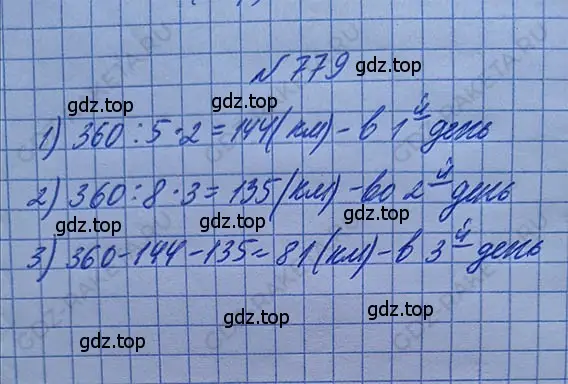 № 779 gdz.top
gdz.top gdz.top
1) 360 : 5 · 2 = 144 (км) - в 1й день
gdz.top
2) 360 : 8 · 3 = 135 (км) - во 2й день
gdz.top gdz.top
3) 360 - 144 - 135 = 81 (км) - в 3й день
gdz.top gdz.top
gdz.top
GDZ-RAKETA.RU